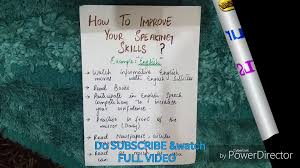 HOW TO IMPROVE
YOUR SPEAKING
SKILLS ?
Example: "English"
Watch informative English
movies with English subtitles
Read Books
Participate in English Speech
competitions to increase
your confidence
Practice in front of the
mirror (Daily)
Read Newspaper, articles
Do SUBSCRIBE &watch
FULL VIDEO
Read
PowerDirector